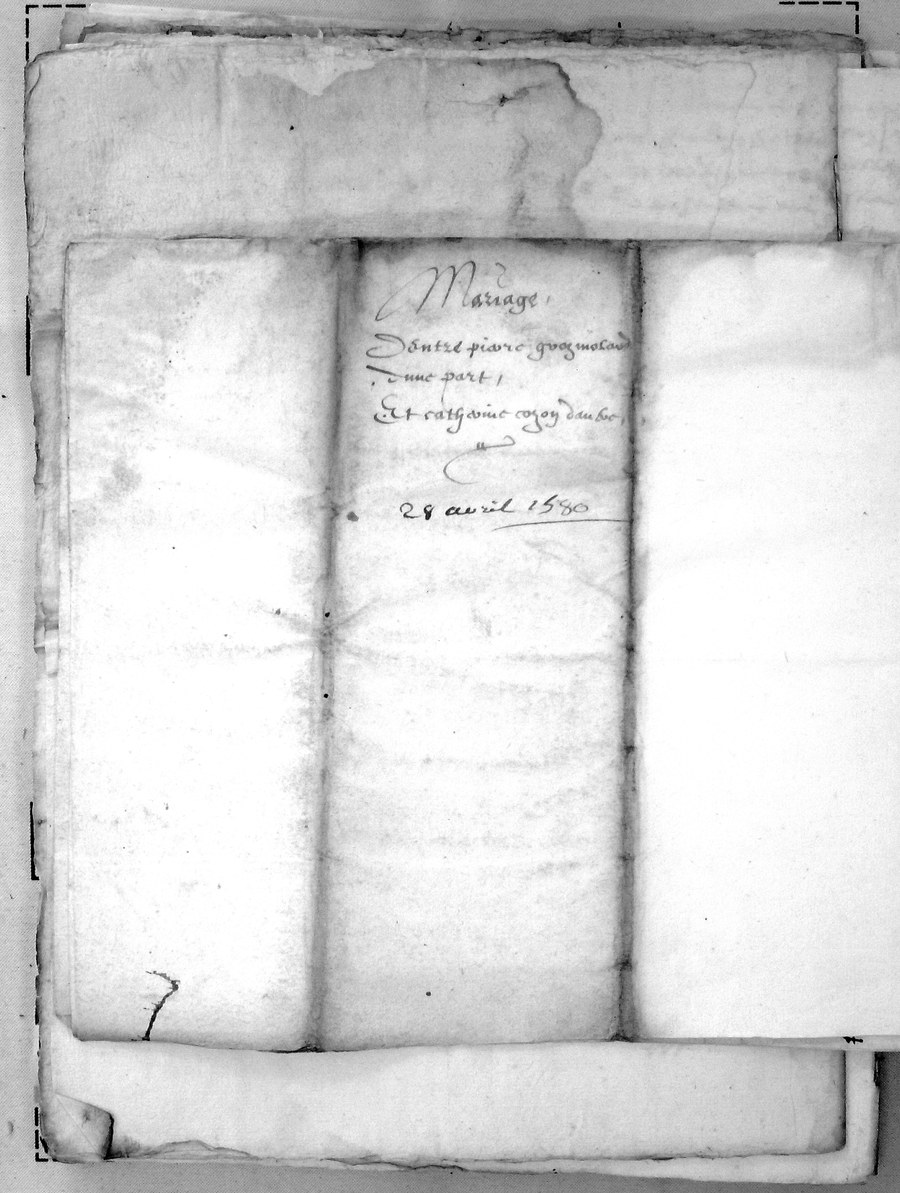 Mariage,
Dentre pierre grozmolard
dune part,
Et catherine cozon daultre,
28 avril 1580